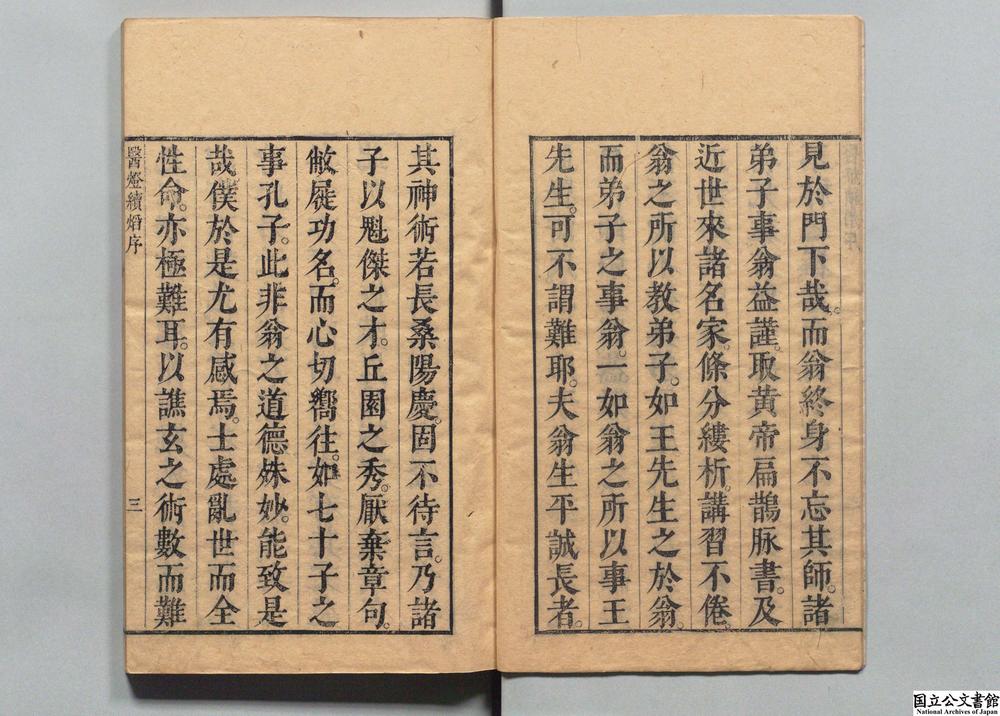 見於門下哉。而翁終身不忘其師。諸
弟子事翁益謹。取黄帝扁鵲脉書。及
近世來諸名家。條分縷析。講習不倦。
翁之所以教弟子。如王先生之於翁。
而弟子之事翁。一如翁之所以事王
先生。可不謂難耶。夫翁生平誠長者。
其神術若長桑陽慶。固不待言。乃諸
子以魁傑之才。丘園之秀。厭棄章句。
敝屣功名。而心切嚮往。如七十子之
事孔子。此非翁之道德姝妙。能致是
哉。僕於是尤有感焉。士處亂世而全
性命。亦極難耳。以譙玄之術數而難
醫燈續焰序
三
国立公文書館
National Archives of Japan